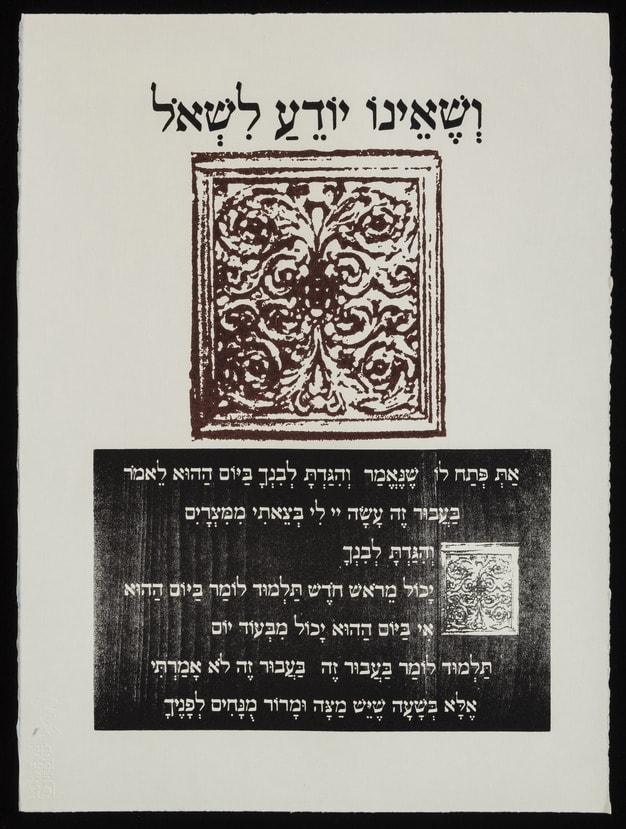 וְשֶׁאֵינוֹ יוֹדֵעַ לִשְׁאֹל
אַתְּ פְּתַח לוֹ שֶׁנֶּאֱמַר וְהִגַּדְתָּ לְבִנְךָ בַּיּוֹם הַהוּא לֵאמֹר
בַּעֲבוּר זֶה עָשָׂה יי לִי בְּצֵאתִי מִמִּצְרָיִם
וְהִגַּדְתָּ לְבִנְךָ
יָכוֹל מֵרֹאשׁ חֹדֶשׁ תַּלְמוּד לוֹמַר בַּיּוֹם הַהוּא
אִי בַּיּוֹם הַהוּא יָכוֹל מִבְּעוֹד יוֹם
תַּלְמוּד לוֹמַר בַּעֲבוּר זֶה בַּעֲבוּר זֶה לֹא אָמַרְתִּי
אֶלָּא בְּשָׁעָה שֶׁיֵּשׁ מַצָּה וּמָרוֹר מֻנָּחִים לְפָנֶיךָ